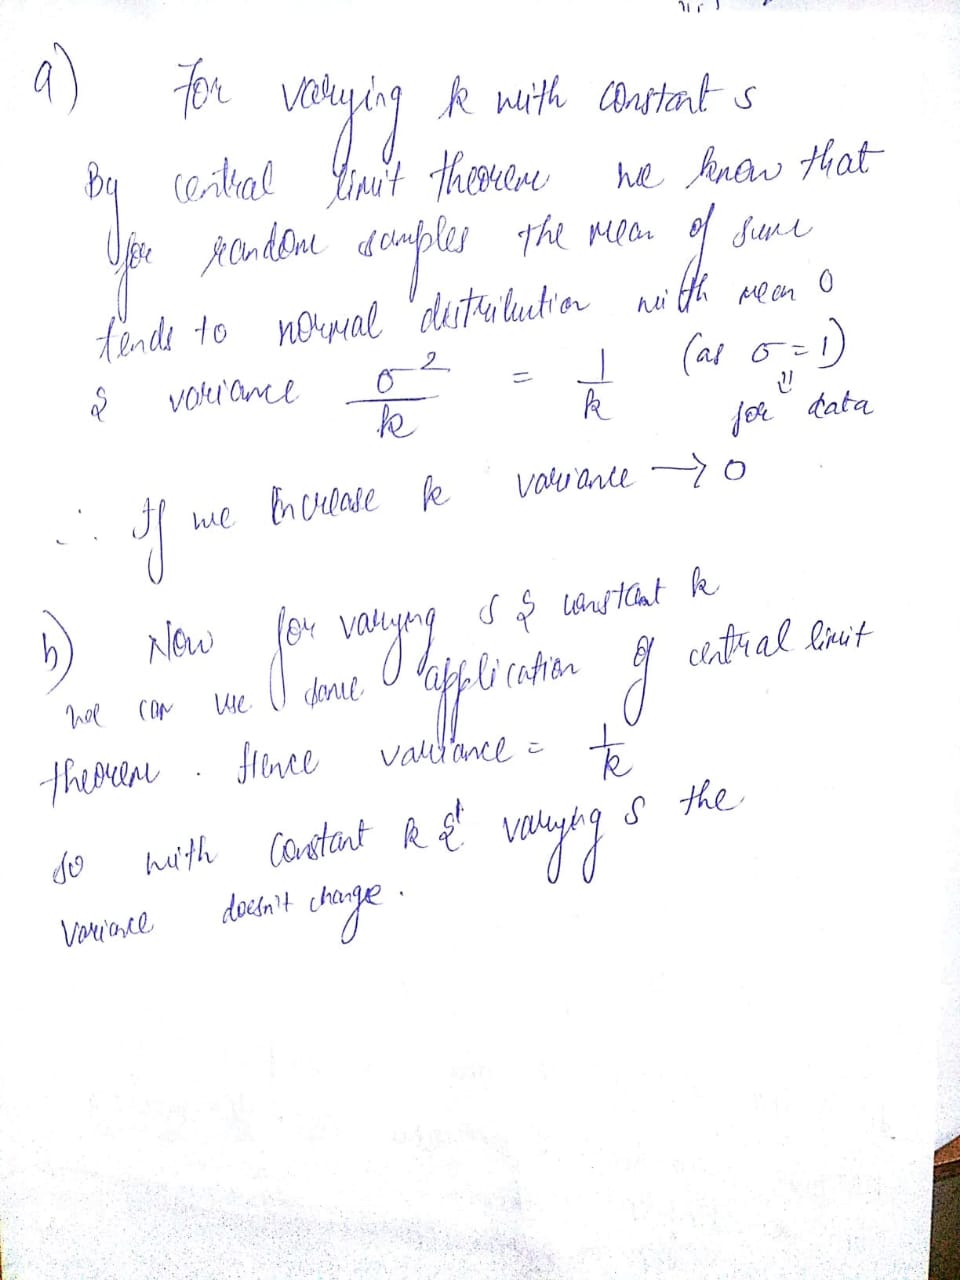 a) For varying k with constant s
By central limit theorem we know that
for random samples the mean of sum
tends to normal distribution with mean 0
& variance σ²/k = 1/k (as σ = 1)
for data
∴ If we increase k variance → 0
b) Now for varying s & constant k
we can use same application of central limit
theorem. Hence variance = 1/k
so with constant k & varying s the
variance doesn't change.